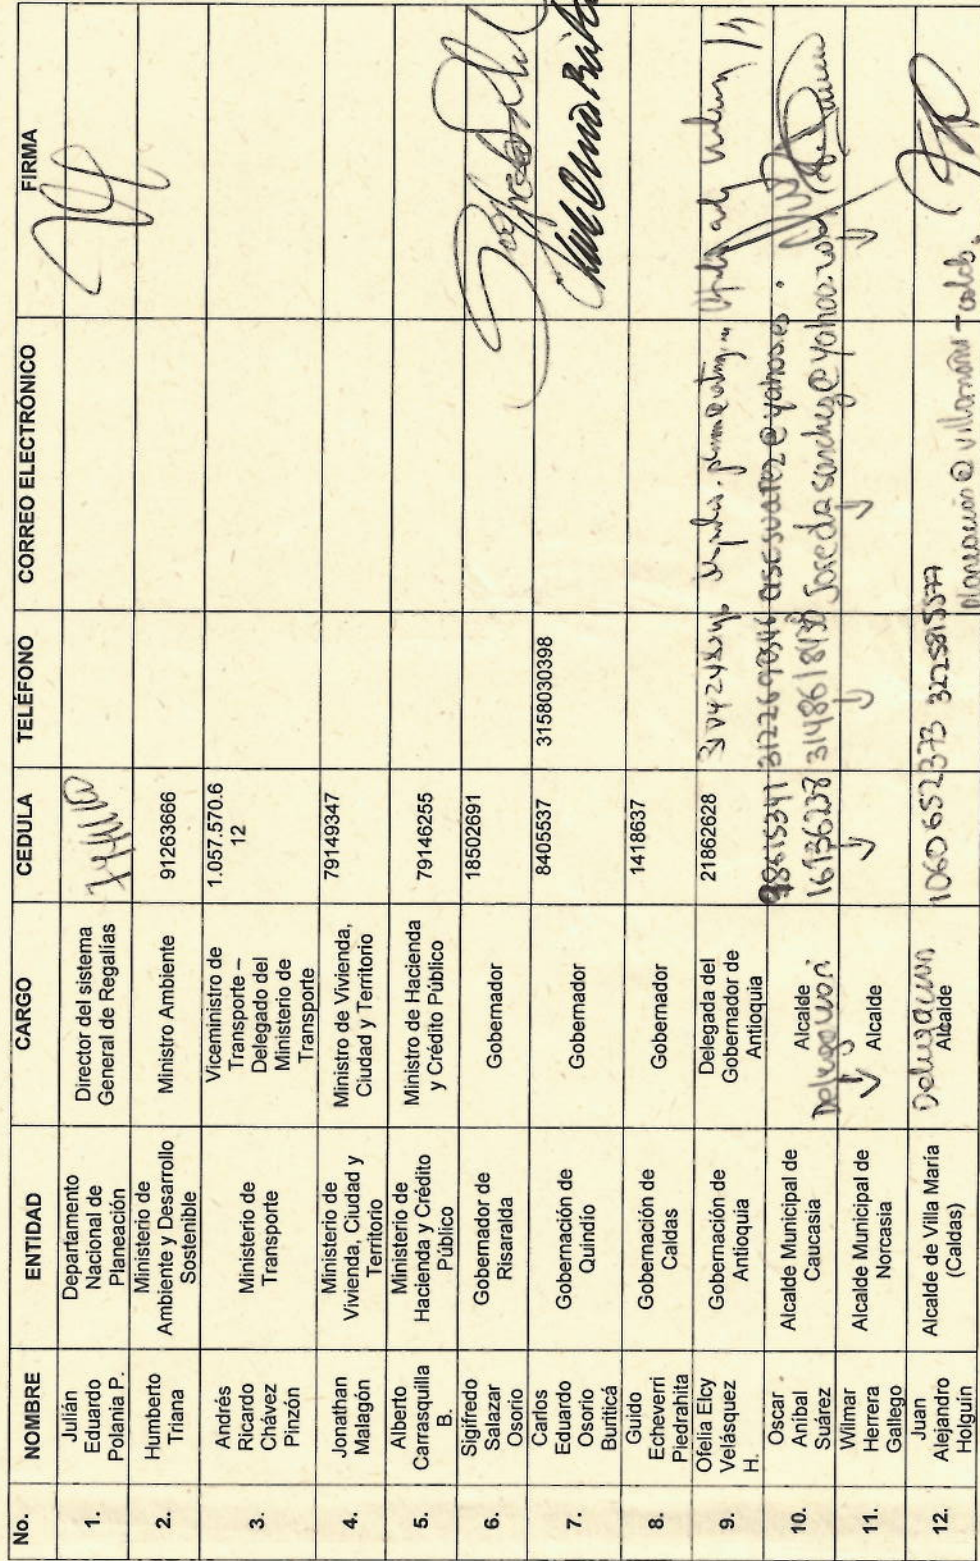 No. NOMBRE ENTIDAD CARGO CEDULA TELÉFONO CORREO ELECTRÓNICO FIRMA
1.
Julián
Eduardo
Polania P.
Departamento
Nacional de
Planeación
Director del sistema
General de Regalías
2.
Humberto
Triana
Ministerio de
Ambiente y Desarrollo
Sostenible
Ministro Ambiente
91263666
3.
Andrés
Ricardo
Chávez
Pinzón
Ministerio de
Transporte
Viceministro de
Transporte –
Delegado del
Ministerio de
Transporte
1.057.570.6
12
4.
Jonathan
Malagón
Ministerio de
Vivienda, Ciudad y
Territorio
Ministro de Vivienda,
Ciudad y Territorio
79149347
5.
Alberto
Carrasquilla
B.
Ministerio de
Hacienda y Crédito
Público
Ministro de Hacienda
y Crédito Público
79146255
6.
Sigifredo
Salazar
Osorio
Gobernador de
Risaralda
Gobernador
18502691
7.
Carlos
Eduardo
Osorio
Buriticá
Gobernación de
Quindío
Gobernador
8405537
3158030398
8.
Guido
Echeverri
Piedrahita
Gobernación de
Caldas
Gobernador
1418637
9.
Ofelia Elcy
Velásquez
H.
Gobernación de
Antioquia
Delegada del
Gobernador de
Antioquia
21862628
10.
Oscar
Aníbal
Suárez
Alcalde Municipal de
Caucasia
Alcalde
98615341 3122690546 asesuarez@yahoo.es
16136238 3148618438 Josedasanchez@yahoo.
11.
Wilmar
Herrera
Gallego
Alcalde Municipal de
Norcasia
Alcalde
12.
Juan
Alejandro
Holguín
Alcalde de Villa María
(Caldas)
Alcalde
1060652373 3225815577